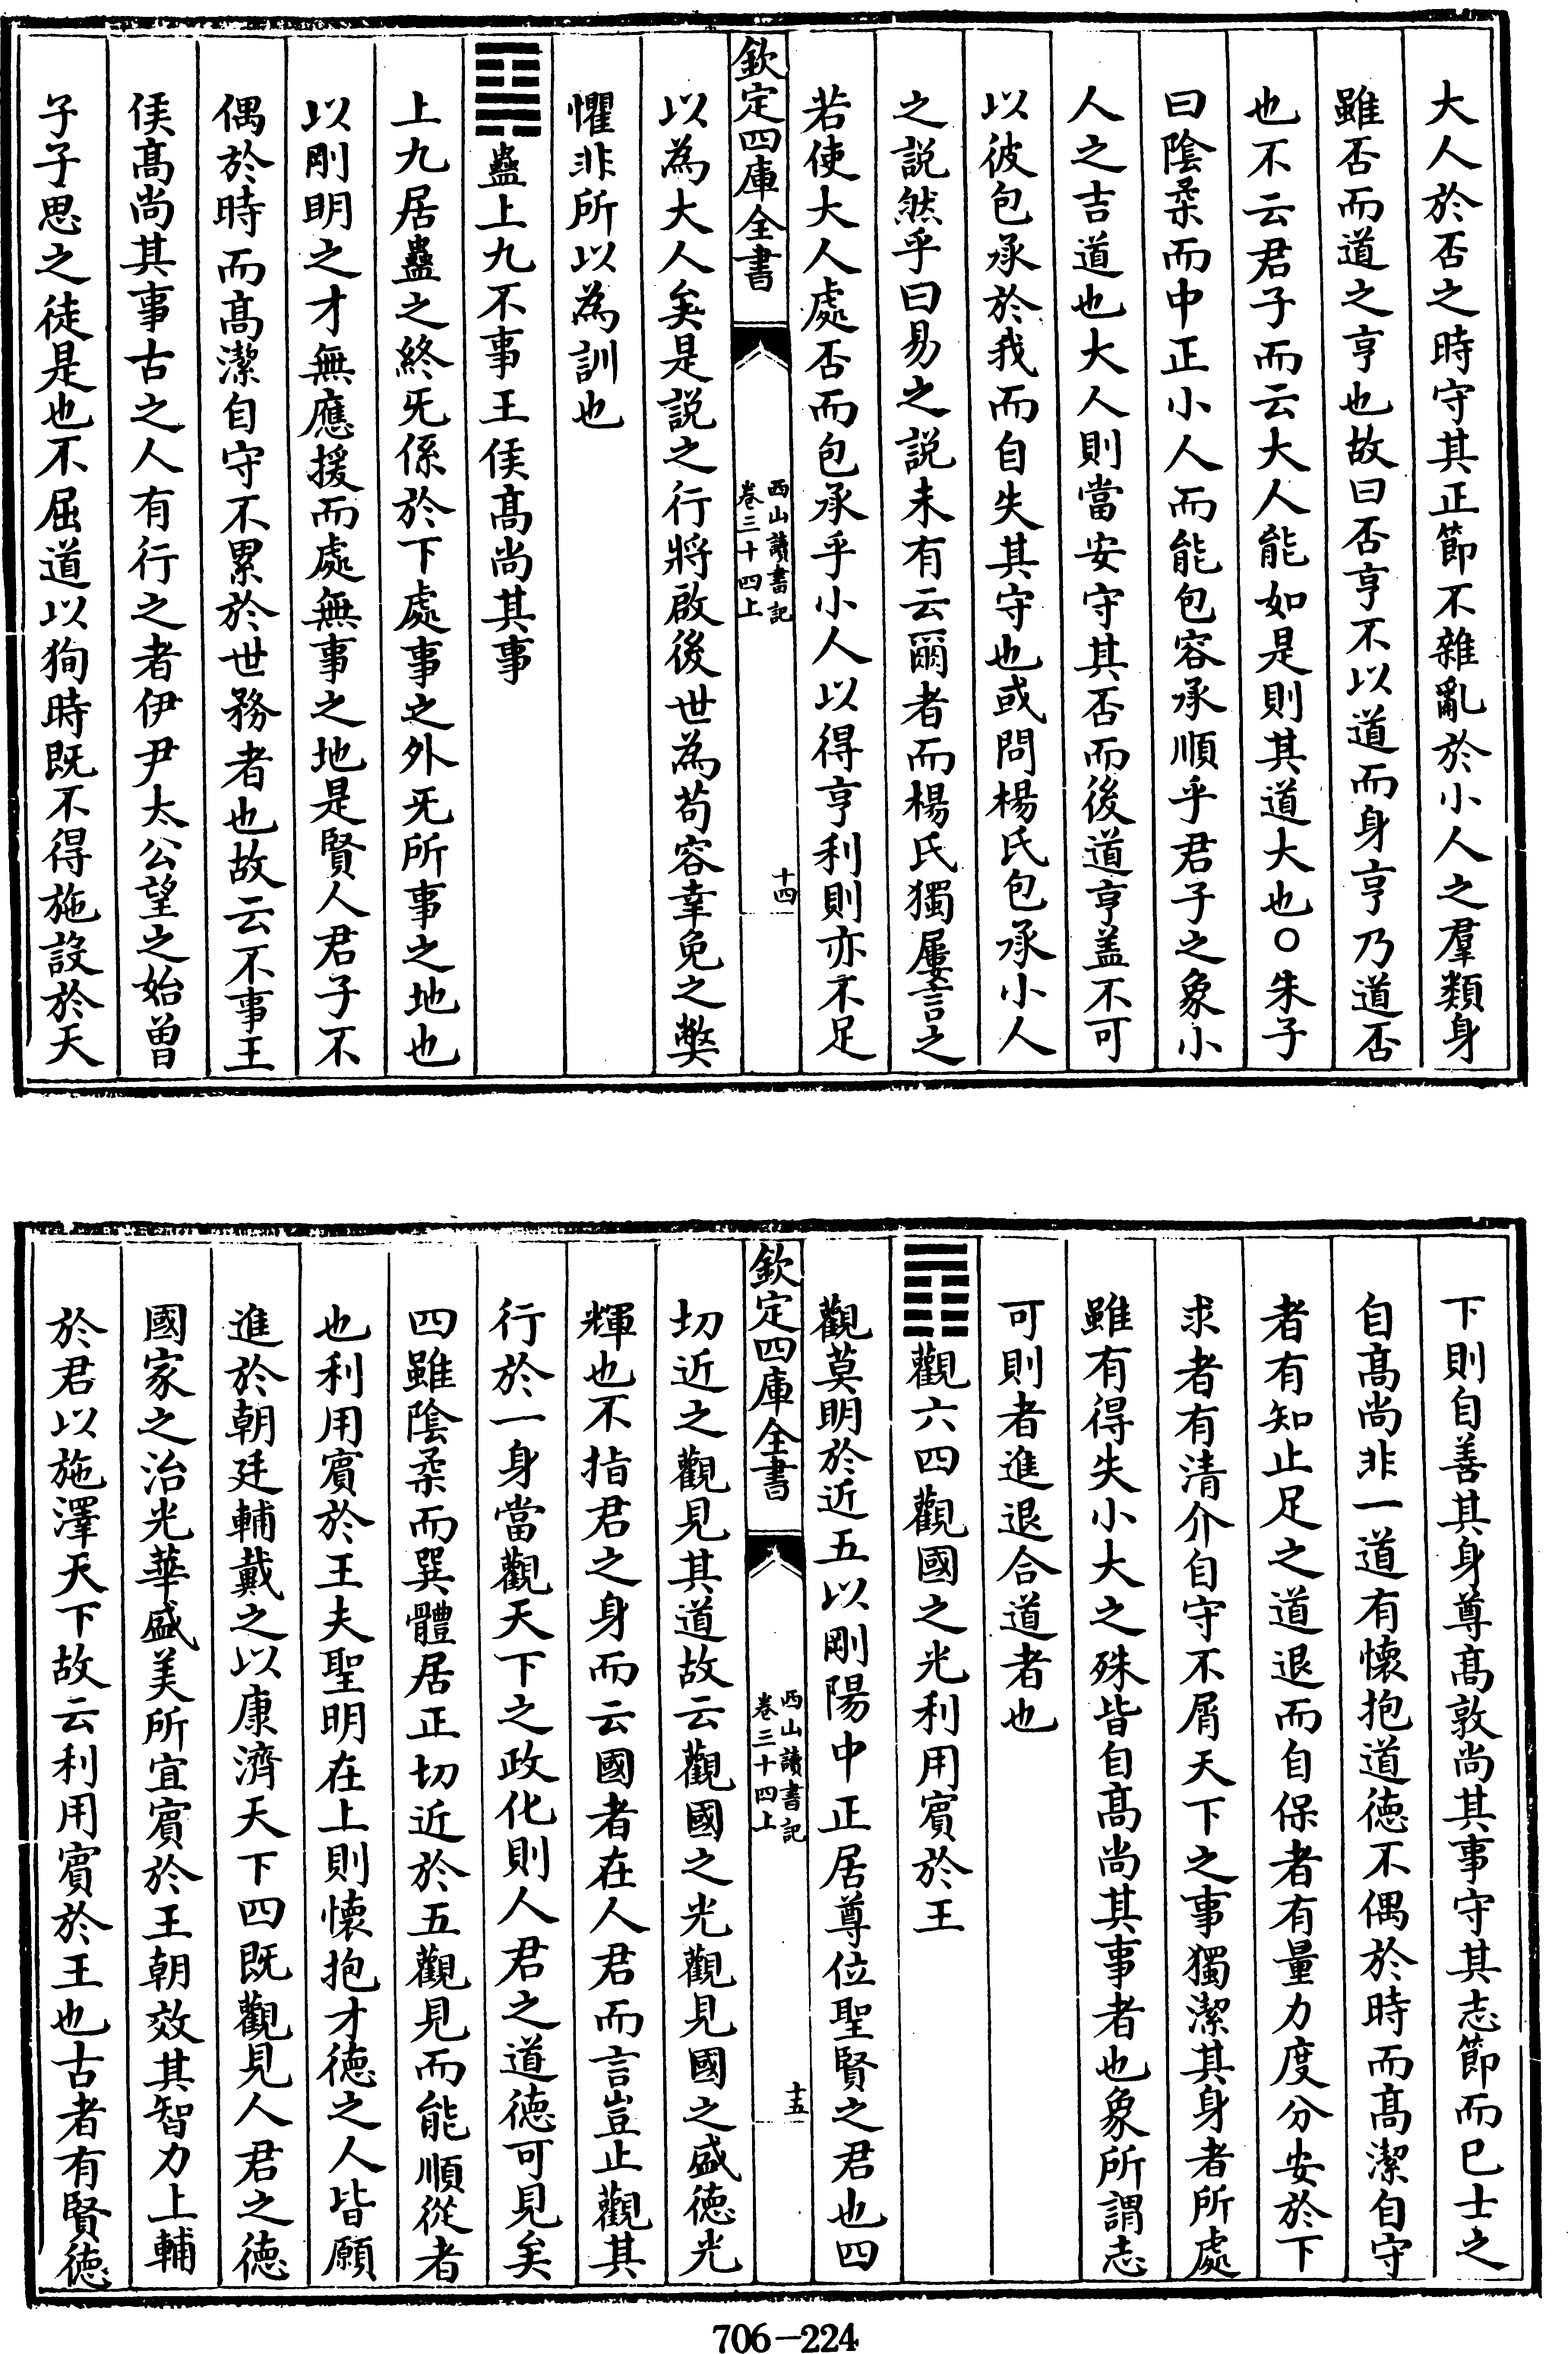 大人於否之時守其正節不雜亂於小人之羣類身
雖否而道之亨也故曰否亨不以道而身亨乃道否
也不云君子而云大人能如是則其道大也○朱子
曰隂柔而中正小人而能包容承順乎君子之象小
人之吉道也大人則當安守其否而後道亨盖不可
以彼包承於我而自失其守也或問楊氏包承小人
之說然乎曰易之說未有云爾者而楊氏獨屢言之
若使大人處否而包承乎小人以得亨利則亦不足
欽定四庫全書
西山讀書記
卷三十四上
十四
以為大人矣是說之行將啟後世為苟容幸免之弊
懼非所以為訓也
䷑蠱上九不事王侯髙尚其事
上九居蠱之終无係於下處事之外无所事之地也
以剛明之才無應援而處無事之地是賢人君子不
偶於時而髙潔自守不累於世務者也故云不事王
侯髙尚其事古之人有行之者伊尹太公望之始曾
子子思之徒是也不屈道以狥時既不得施設於天
下則自善其身尊髙敦尚其事守其志節而已士之
自髙尚非一道有懷抱道徳不偶於時而髙潔自守
者有知止足之道退而自保者有量力度分安於下
求者有清介自守不屑天下之事獨潔其身者所處
雖有得失小大之殊皆自髙尚其事者也象所謂志
可則者進退合道者也
䷓觀六四觀國之光利用賔於王
觀莫明於近五以剛陽中正居尊位聖賢之君也四
欽定四庫全書
西山讀書記
卷三十四上
十五
切近之觀見其道故云觀國之光觀見國之盛徳光
輝也不指君之身而云國者在人君而言豈止觀其
行於一身當觀天下之政化則人君之道徳可見矣
四雖隂柔而巽體居正切近於五觀見而能順從者
也利用賔於王夫聖明在上則懷抱才徳之人皆願
進於朝廷輔戴之以康濟天下四既觀見人君之徳
國家之治光華盛美所宜賔於王朝效其智力上輔
於君以施澤天下故云利用賔於王也古者有賢徳
706-224